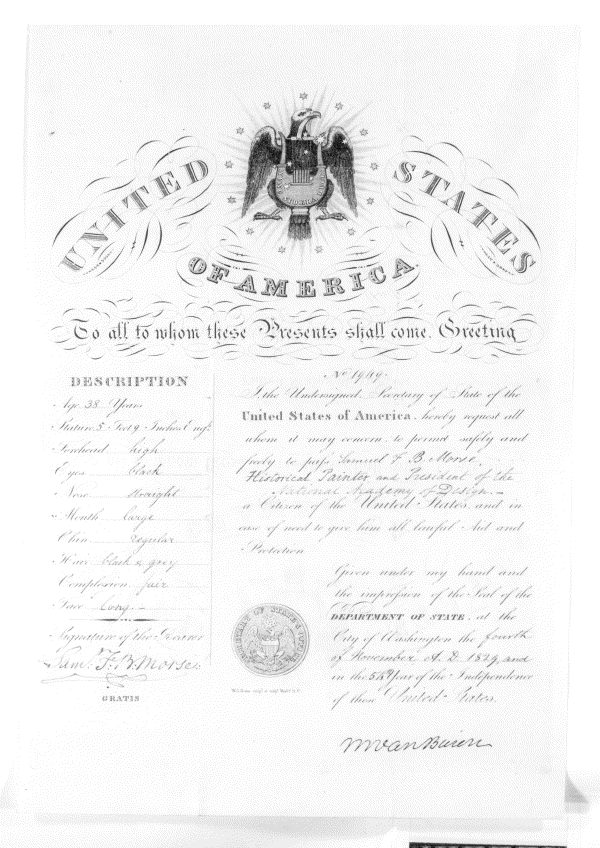 UNITED STATES
OF AMERICA.
To all to whom these Presents shall come. Greeting
DESCRIPTION
Age, 38 Years
Stature, 5 Feet 9 Inches Engs.
Forehead high
Eyes black
Nose straight
Mouth large
Chin regular
Hair black & grey
Complexion fair
Face long.
Signature of the Bearer
Sam. F. B. Morse.
GRATIS
No 1949.
I the Undersigned, Secretary of State of the
United States of America, hereby request all
whom it may concern, to permit safely and
freely to pass Samuel F. B. Morse,
Historical Painter and President of the
National Academy of Design.
a Citizen of the United States, and in
case of need to give him all lawful Aid and
Protection
Given under my hand and
the impression of the Seal of the
DEPARTMENT OF STATE, at the
City of Washington the fourth
of November A. D. 1829, and
in the 54th Year of the Independence
of these United States.
M Van Buren